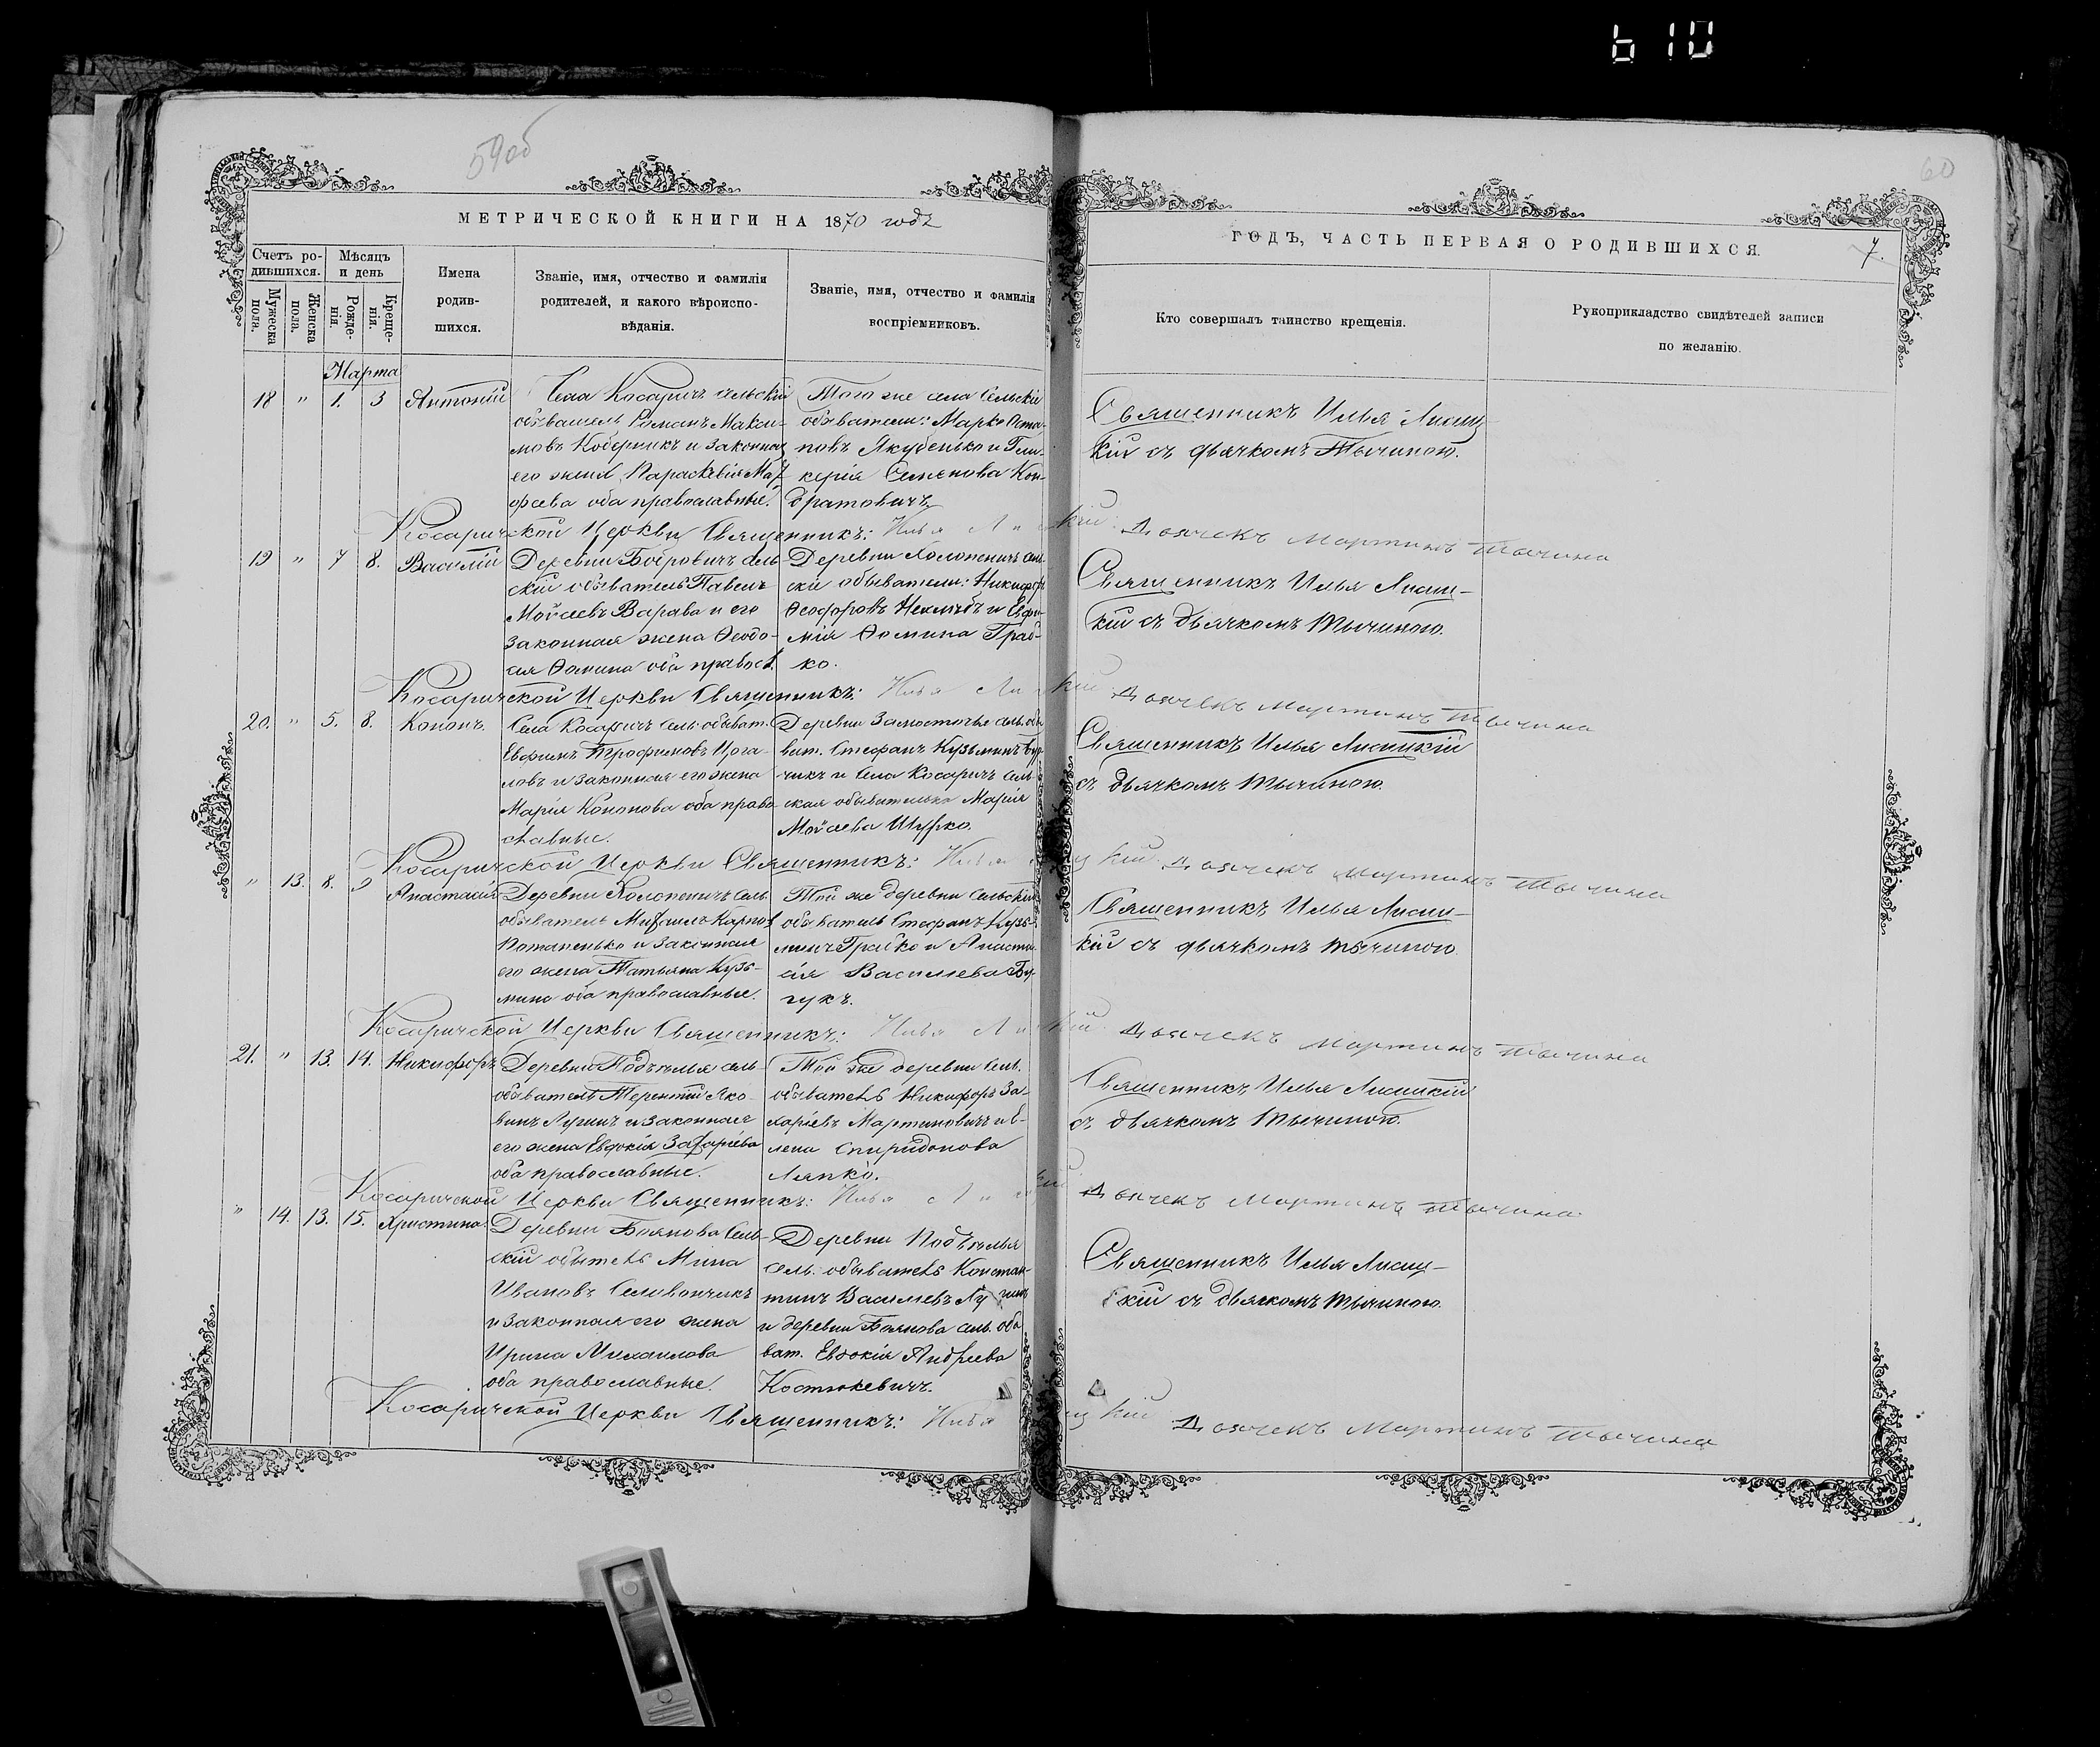 610
59об
60
МЕТРИЧЕСКОЙ КНИГИ НА 1870 годъ
ГОДЪ, ЧАСТЬ ПЕРВАЯ О РОДИВШИХСЯ.
7.
Счетъ ро-
дившихся.
Мѣсяцъ
и день
Мужеска
пола.
Женска
пола.
Рожде-
нія.
Креще-
нія.
Имена
родив-
шихся.
Званіе, имя, отчество и фамилія
родителей, и какого вѣроиспо-
вѣданія.
Званіе, имя, отчество и фамилія
воспріемниковъ.
Кто совершалъ таинство крещенія.
Рукоприкладство свидѣтелей записи
по желанію.
Марта
18 " 1. 3 Антоній
Села Косаричъ сельскій
обыватель Романъ Макси-
мовъ и законная
его жена Параскевія
оба православные.
Того же села сельскіе
обыватели: Марко Оста-
повъ Якубенько и Гли-
керія Семенова Кон-
дратовичъ
Священникъ Илья Лисиц-
кій съ дьячкомъ Тычиною.
Косаричской Церкви Священникъ: Илья Дьячекъ Мартинъ Тычина
19 " 7 8. Василій
Деревни Бобровичъ сель-
скій обыватель Павелъ
Мойсеевъ Варава и его
законная жена Ѳеодо-
сія Ѳомина оба правосл.
Деревни Холопеничъ сель-
скіе обыватели: Никифоръ
Ѳеодоровъ и Евфи-
мія Ѳомина Граб-
ко.
Священникъ Илья Лисиц-
кій съ дьячкомъ Тычиною.
Косаричской Церкви Священникъ: Илья Дьячекъ Мартинъ Тычина
20. " 5. 8. Кононъ.
Села Косаричъ сель. обыват.
Евфимъ Трофимовъ
и законная его жена
Марія Кононова оба право-
славные.
Деревни Замосточье сель. обы-
ват. Стефанъ Кузьминъ
и села Косаричъ сель-
ская обывателька Марія
Мойсеева Шурко.
Священникъ Илья Лисицкій
съ дьячкомъ Тычиною.
Косаричской Церкви Священникъ: Илья Дьячекъ Мартинъ Тычина
" 13. 8. 9 Анастасія
Деревни Холопеничъ сель.
обыватель Михаилъ Карповъ
Потапенько и законная
его жена Татьяна Кузь-
мина оба православные.
Той же деревни сельскій
обыватель Стефанъ Кузь-
минъ Грабко и Анаста-
сія Василіева
Священникъ Илья Лисиц-
кій съ дьячкомъ Тычиною.
Косаричской Церкви Священникъ: Илья Дьячекъ Мартинъ Тычина
21. " 13. 14. Никифоръ
Деревни сель.
обыватель Терентій Яко-
винъ и законная
его жена Евдокія Захаріева
оба православные.
Той же деревни сель.
обыватель Никифоръ За-
харіевъ Мартиновичъ и Е-
лена Спиридонова
Ляпко.
Священникъ Илья Лисицкій
съ дьячкомъ Тычиною.
Косаричской Церкви Священникъ: Илья Дьячекъ Мартинъ Тычина
" 14. 13. 15. Христина
Деревни Боянова сель-
скій Мина
Ивановъ Селивончикъ
и законная его жена
Ирина Михаилова
оба православные.
Деревни
сель. обыватель Констан-
тинъ Василіевъ
и деревни Боянова сель. обы-
ват. Евдокія Андреева
Костюкевичъ.
Священникъ Илья Лисиц-
кій съ дьячкомъ Тычиною.
Косаричской Церкви Священникъ: Илья Дьячекъ Мартинъ Тычина